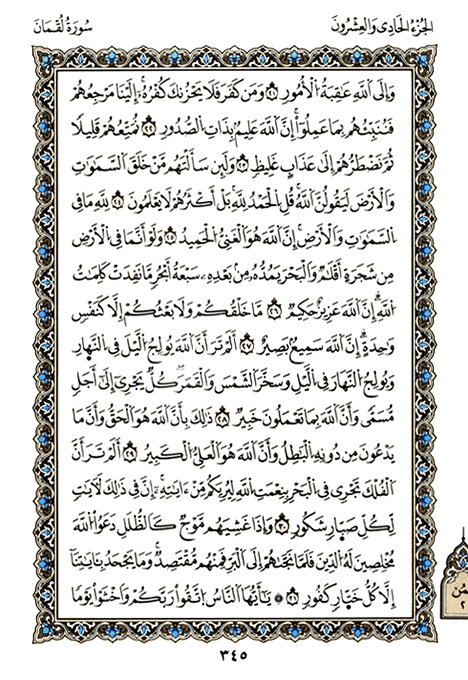 الجزء الحادى والعشرون
سورة لقمان
وإلى الله عقبة الأمور ٢١ ومن كفر فلا يحزنك كفره إلينا مرجعهم
فننبئهم بما عملوا إن الله عليم بذات الصدور ٢٢ نمتعهم قليلا
ثم نضطرهم إلى عذاب غليظ ٢٣ ولئن سألتهم من خلق السموات
والأرض ليقولن الله قل الحمد لله بل أكثرهم لا يعلمون ٢٤ لله ما فى
السموات والأرض إن الله هو الغنى الحميد ٢٥ ولو أنما فى الأرض
من شجرة أقلم والبحر يمده من بعده سبعة أبحر ما نفدت كلمت
الله إن الله عزيز حكيم ٢٦ ما خلقكم ولا بعثكم إلا كنفس
واحدة إن الله سميع بصير ٢٧ ألم تر أن الله يولج اليل فى النهار
ويولج النهار فى اليل وسخر الشمس والقمر كل يجرى إلى أجل
مسمى وأن الله بما تعملون خبير ٢٨ ذلك بأن الله هو الحق وأن ما
يدعون من دونه البطل وأن الله هو العلى الكبير ٢٩ ألم تر أن
الفلك تجرى فى البحر بنعمت الله ليريكم من ءايته إن فى ذلك لأيت
لكل صبار شكور ٣٠ وإذا غشيهم موج كالظلل دعوا الله
مخلصين له الدين فلما نجىهم إلى البر فمنهم مقتصد وما يجحد بايتنا
إلا كل ختار كفور ٣١ ۞ يأيها الناس اتقوا ربكم واخشوا يوما
٣٤٥